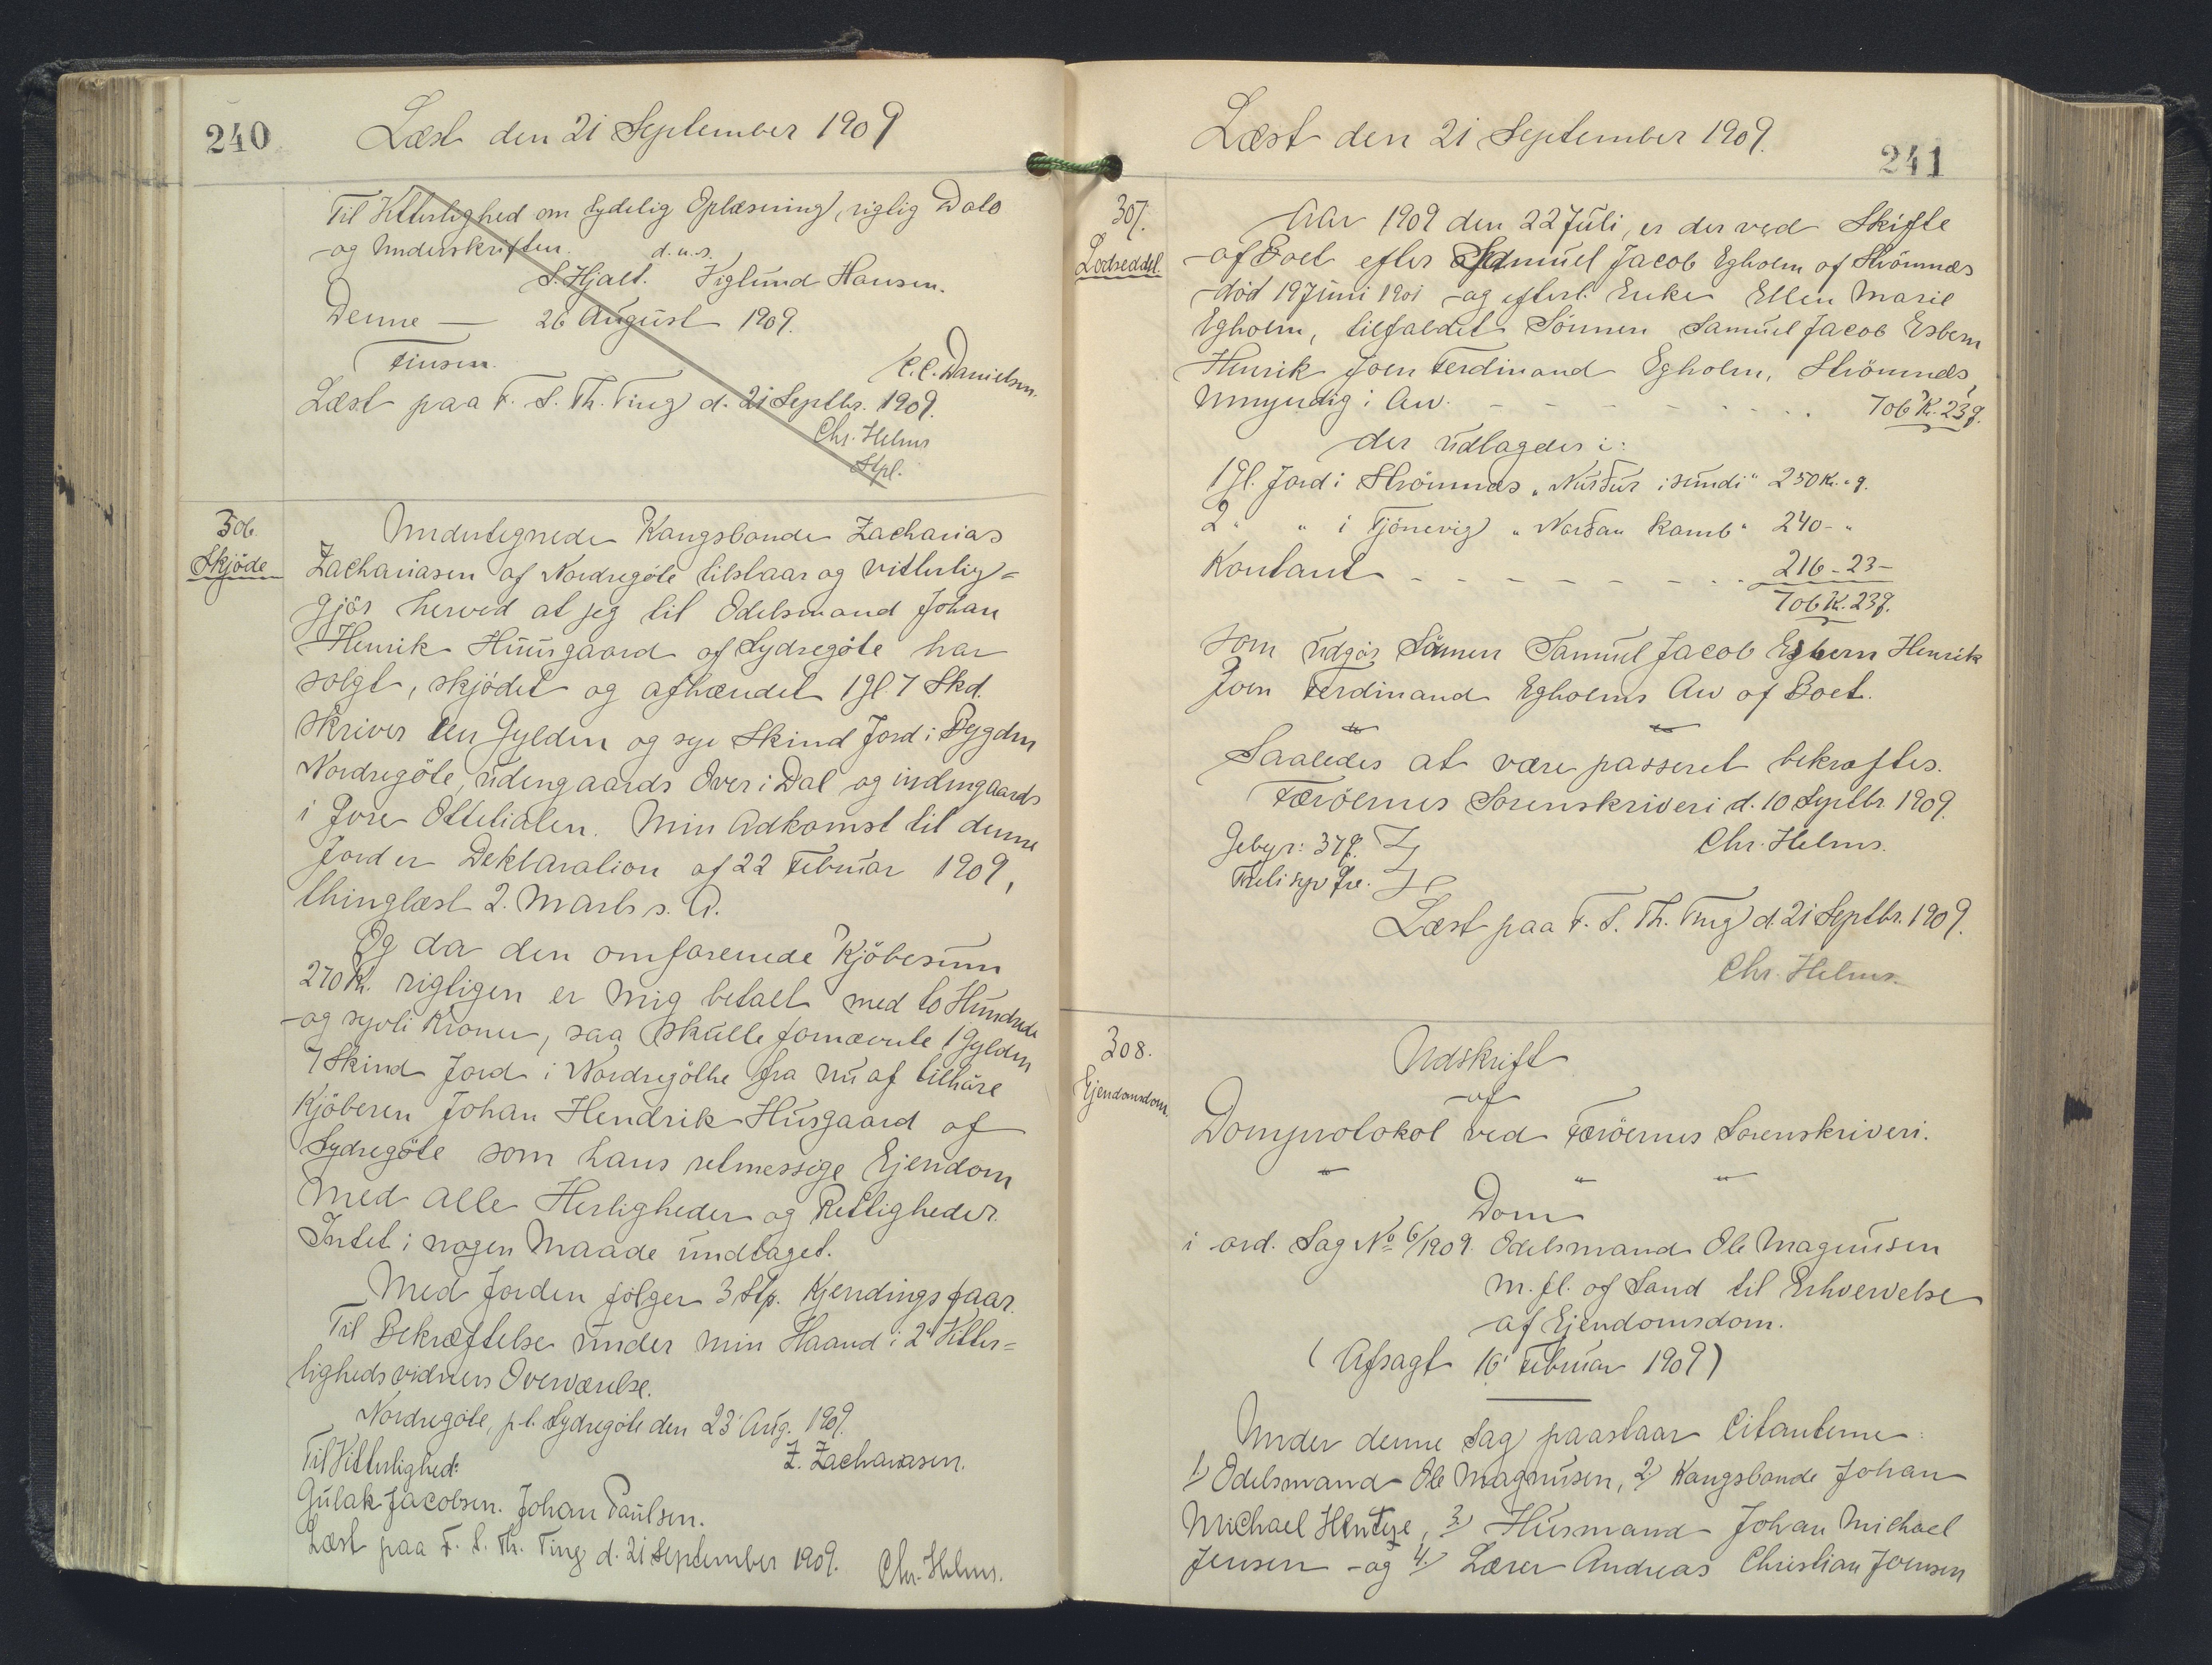 240
Læst den 21 September 1909
Til Vitterlighed om tydelig Oplæsning, rigtig Dato
og Underskriften. d.u.s.
S. Hjalt. Viglund Hansen.
Denne — 26 August 1909.
Finsen. C.C. Danielsen.
Læst paa F. S. Th. Ting d. 21 Septbr. 1909.
Chr. Helms
Stpl.
306.
Skjöde
Undertegnede Kongsbonde Zacharias
Zachariasen af Nordregöte tilstaar og vitterlig=
gjör herved at jeg til Odelsmand Johan
Henrik Huusgaard af Sydregöte har
solgt, skjödet og afhændet 1 Gl. 7 Skd.
skriver en Gylden og syv Skind Jord i Bygden
Nordregöte, udengaards Over i Dal og indengaards
i Jore Ottetialen. Min Adkomst til denne
Jord er Deklaration af 22 Februar 1909,
thinglæst 2. Marts s. A.
Og da den omforenede Kjöbesum
270 Kr. rigtigen er mig betalt med to Hundrede
og syvti Kroner, saa skulle fornævnte 1 Gylden
7 Skind Jord i Nordregöthe fra nu af tilhöre
Kjöberen Johan Hendrik Husgaard af
Sydregöte som hans retmessige Ejendom
med alle Herligheder og Rettigheder.
Intet i nogen Maade undtaget.
Med Jorden fölger 3 Stp. Kjendingsfaar.
Til Bekræftelse under min Haand i 2de Vitter=
lighedsvidners Overværelse.
Nordregöte, p.t. Sydregöte den 23 Aug. 1909.
Til Vitterlighed: Z. Zachariasen.
Gulak Jacobsen. Johan Paulsen.
Læst paa F. S. Th. Ting d. 21 September 1909. Chr. Helms.
Læst den 21 September 1909.
241
307.
Lodseddel.
Aar 1909 den 22 Juli, er der ved Skifte
af Boet efter Samuel Jacob Egholm af Strömnæs
död 19 Juni 1901 og efterl. Enke Ellen Marie
Egholm, tilfaldet Sönnen Samuel Jacob Esbern
Henrik Joen Ferdinand Egholm, Strömnæs,
Umyndig i Arv. 706 Kr. 23 Ø.
der udlagdes i:
1 Gl. Jord i Strömnæs „Nurður i sundi" 250 Kr. " Ø.
2 " " i Tjönevig „Norðan Kamb" 240 - "
Kontant 216 - 23 -
706 Kr. 23 Ø.
som udgör Sönnen Samuel Jacob Esbern Henrik
Joen Ferdinand Egholms Arv af Boet.
" "
Saaledes at være passeret bekræftes.
Færöernes Sorenskriveri d. 10 Septbr. 1909.
Gebyr: 37 Ø. Chr. Helms.
Treti syv Øre.
Læst paa F. S. Th. Ting d. 21 Septbr. 1909.
Chr. Helms.
308.
Ejendomsdom.
Udskrift
af
Domprotokol ved Færöernes Sorenskriveri.
" " "
Dom
i ord. Sag No 6/1909. Odelsmand Ole Magnusen
m. fl. af Sand til Erhvervelse
af Ejendomsdom.
(Afsagt 16 Februar 1909)
Under denne Sag paastaar Citanterne:
1) Odelsmand Ole Magnusen, 2) Kongsbonde Johan
Michael Hentze, 3) Husmand Johan Michael
Jensen og 4) Lærer Andreas Christian Joensen